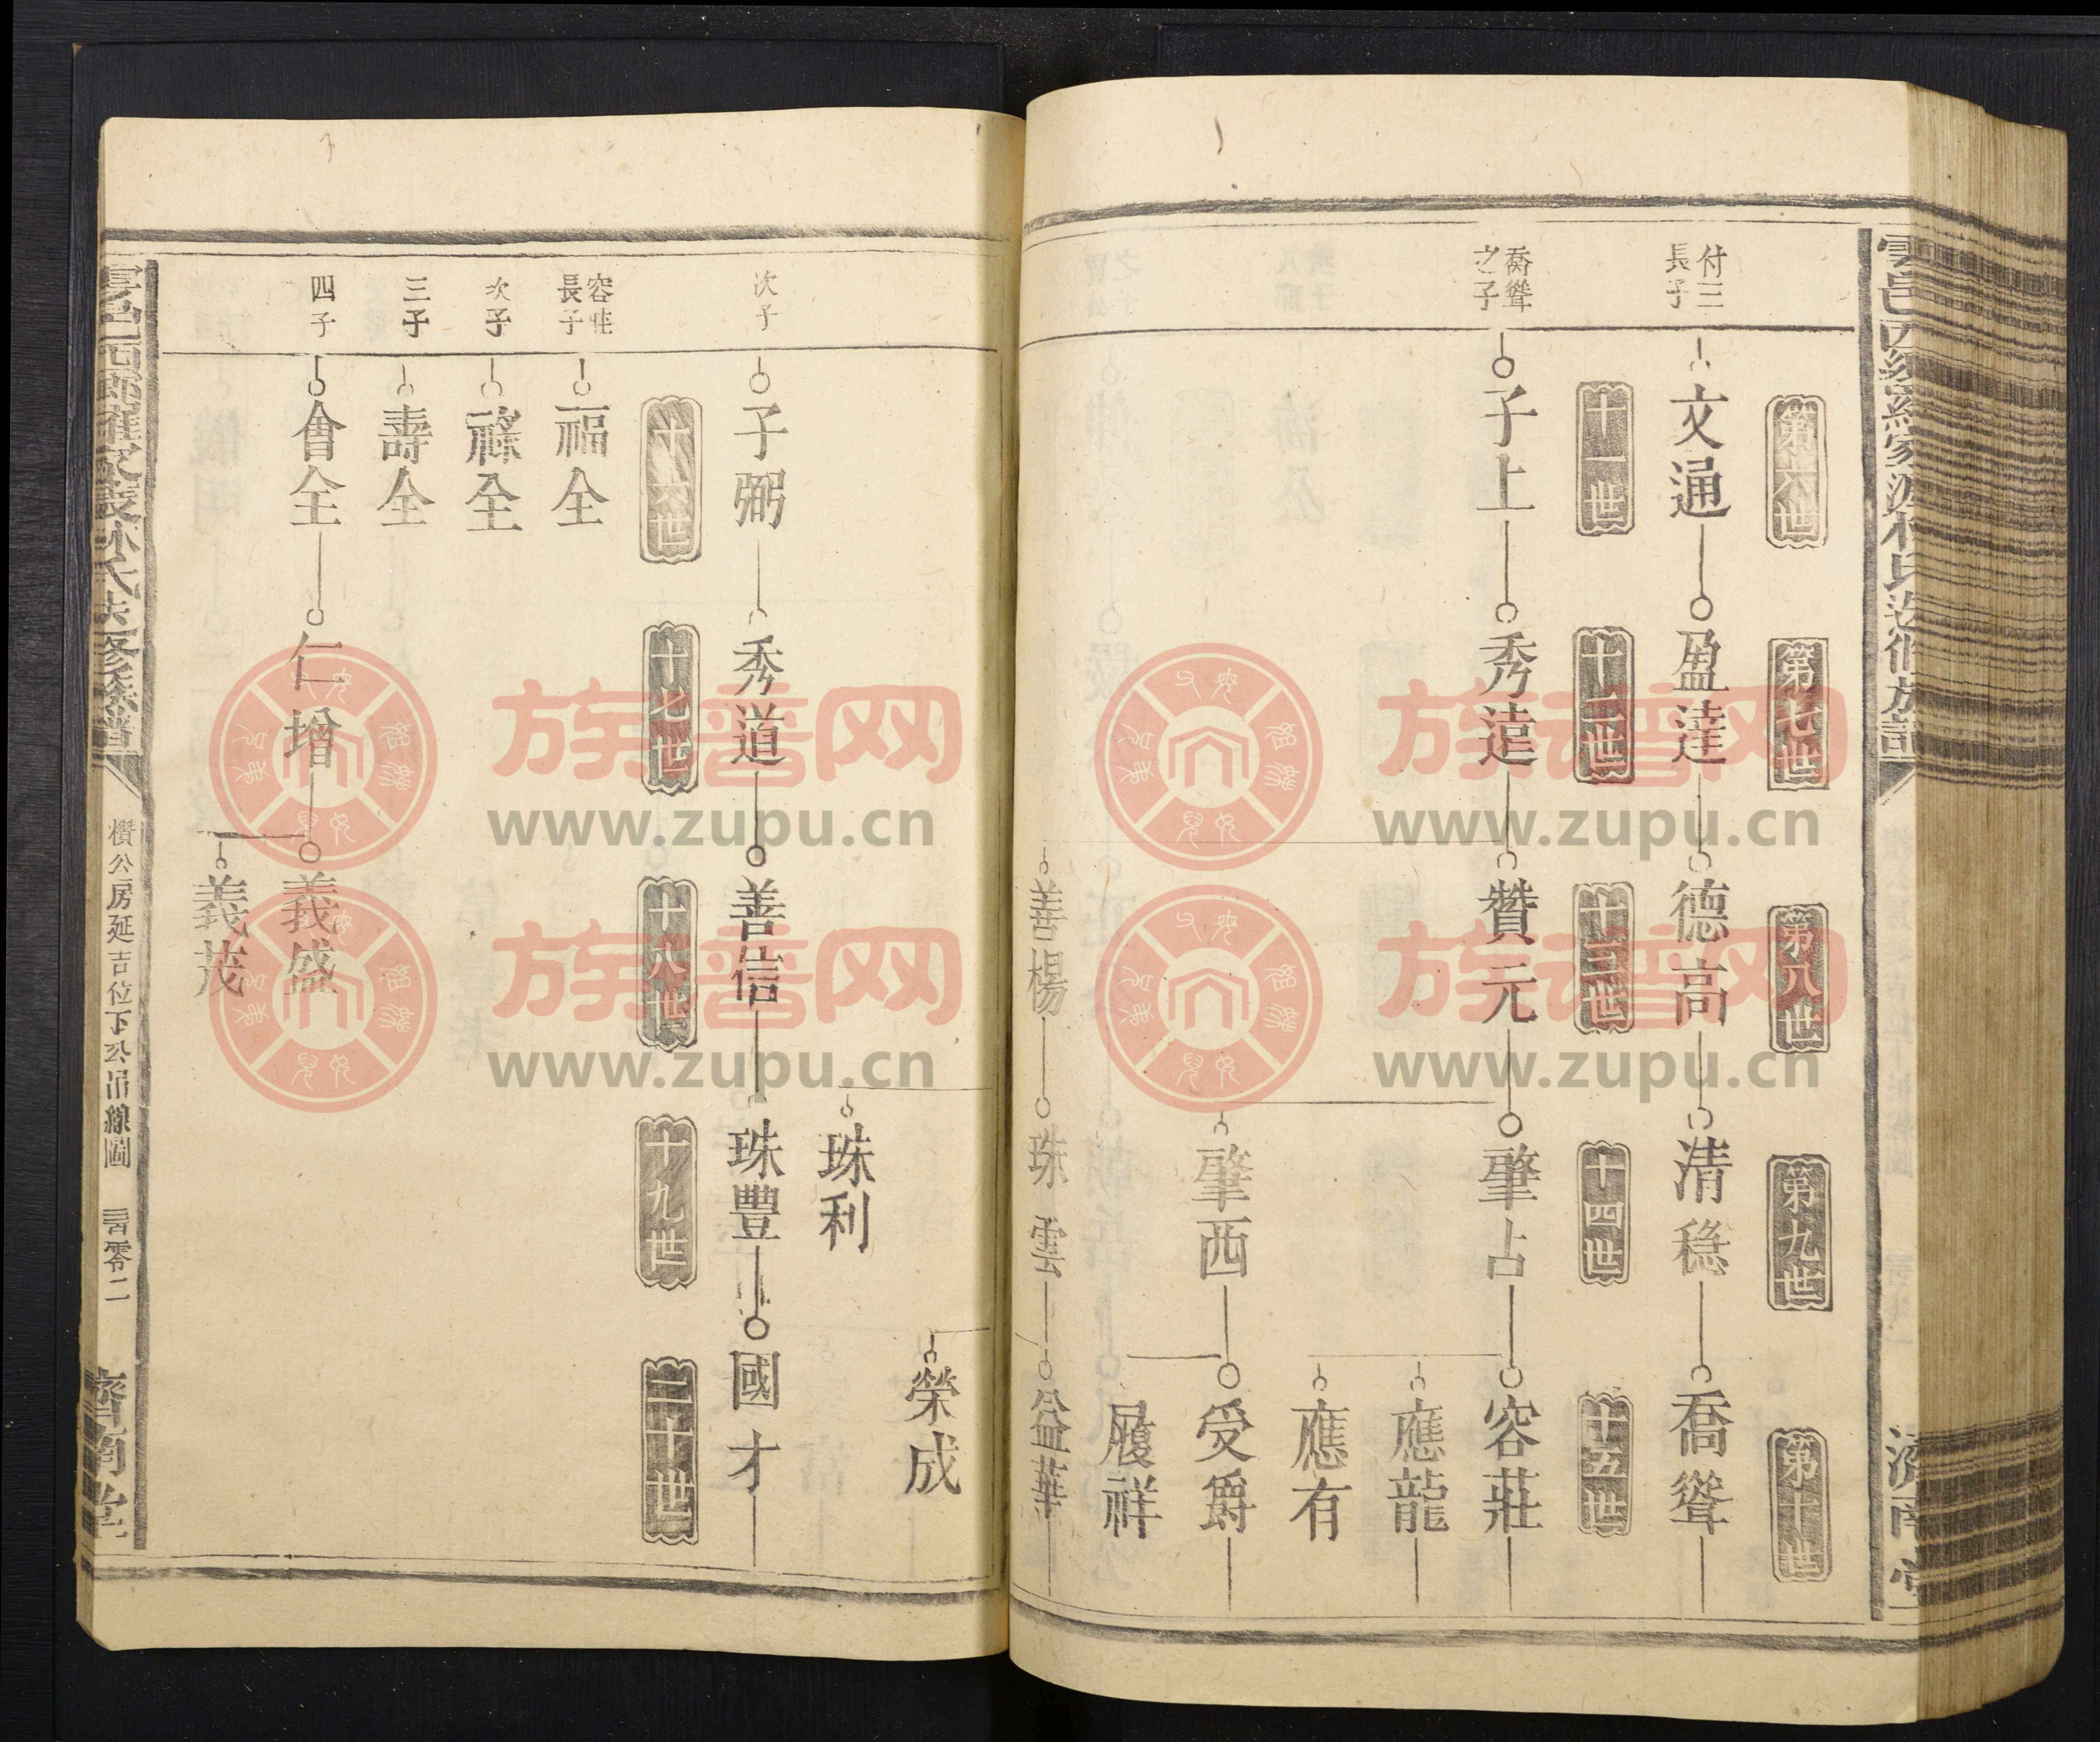 付三
長子
第六世
文通
第七世
盈達
第八世
德高
第九世
清穩
第十世
喬聳
十一世
十二世
十三世
十四世
十五世
喬聳
之子
子上
秀遠
贊元
肇占
容莊
應龍
應有
肇西
受爵
履祥
善楊
珠雲
益華
濟南堂
榮成
珠利
次子
子弼
秀道
善信
珠豐
國才
十六世
十七世
十八世
十九世
二十世
長子
福全
次子
祿全
三子
壽全
四子
會全
仁增
義盛
義茂
公房延吉位下公吊線圖
濟南堂
族谱网
www.zupu.cn
族谱网
www.zupu.cn
族谱网
www.zupu.cn
族谱网
www.zupu.cn